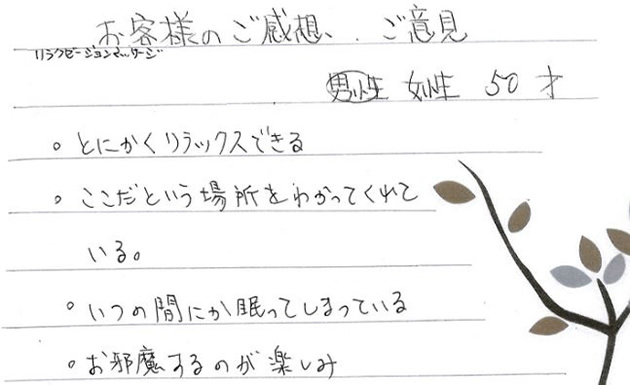 お客様のご感想、ご意見
リラクゼーションマッサージ
男性 女性 50才
。とにかくリラックスできる
。ここだという場所をわかってくれて
いる。
。いつの間にか眠ってしまっている
。お邪魔するのが楽しみ